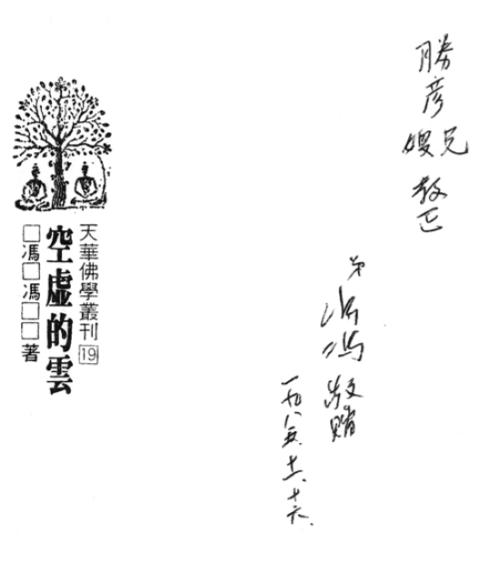 勝彥兄嫂教正
弟 馮馮 敬贈
一九八五.十一.十六.
天華佛學叢刊19
空虛的雲
□馮□馮□□著